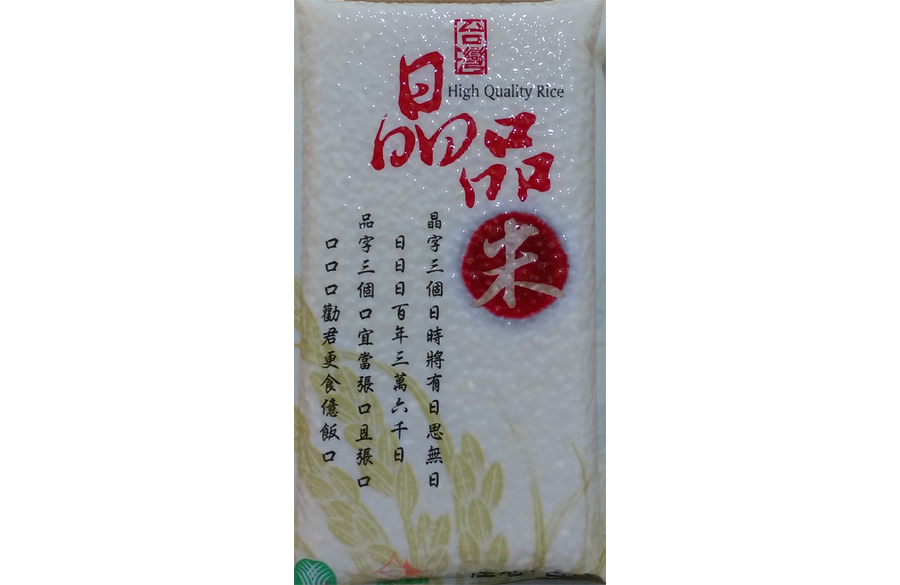 台灣
High Quality Rice
晶品
米
晶字三個日時將有日思無日
日日日百年三萬六千日
品字三個口宜當張口且張口
口口口勸君更食億飯口